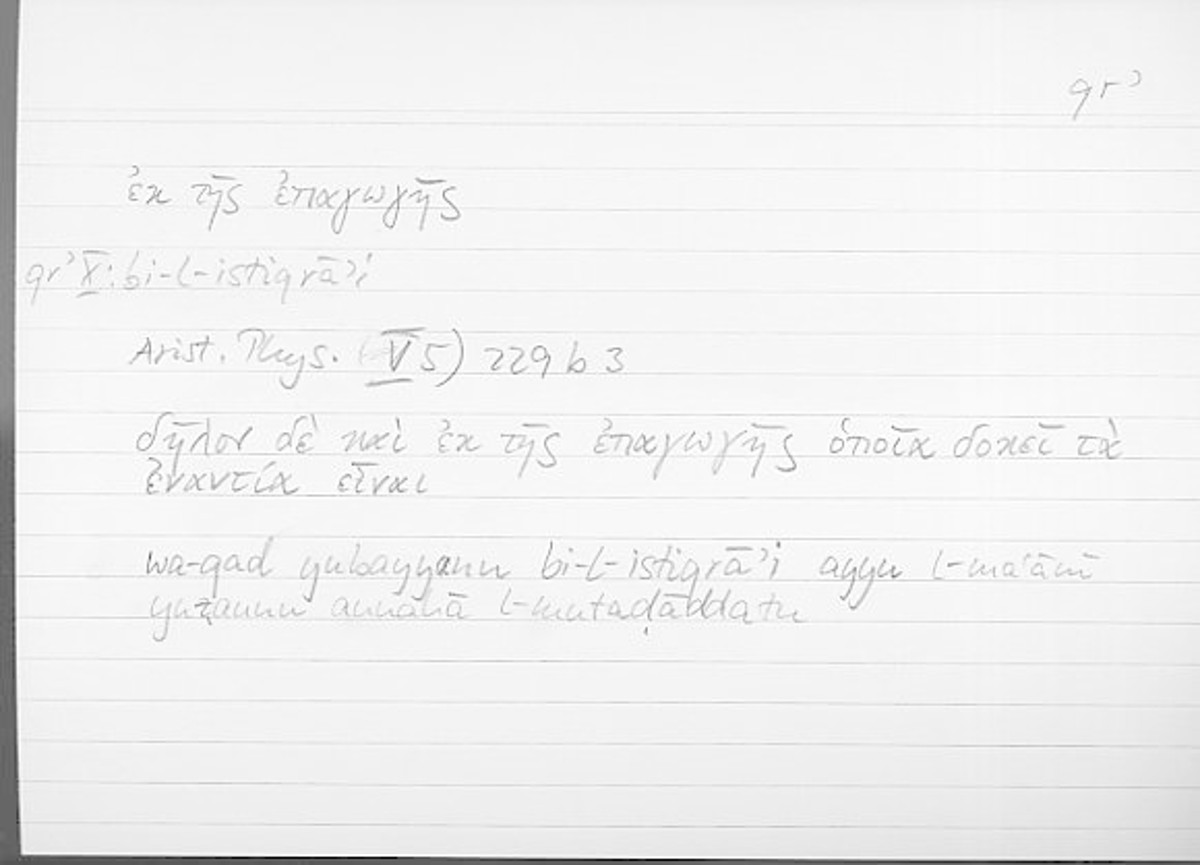 qrʾ
ἐκ τῆς ἐπαγωγῆς
qrʾ X: bi-l-istiqrāʾi
Arist. Phys. (V 5) 229 b 3
δῆλον δὲ καὶ ἐκ τῆς ἐπαγωγῆς ὁποῖα δοκεῖ τὰ
ἐναντία εἶναι
wa-qad yubayyanu bi-l-istiqrāʾi ayyu l-maʿānī
yuẓannu annahā l-mutaḍāddatu